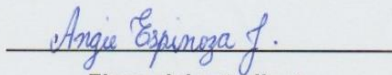 Angie Espinoza J.